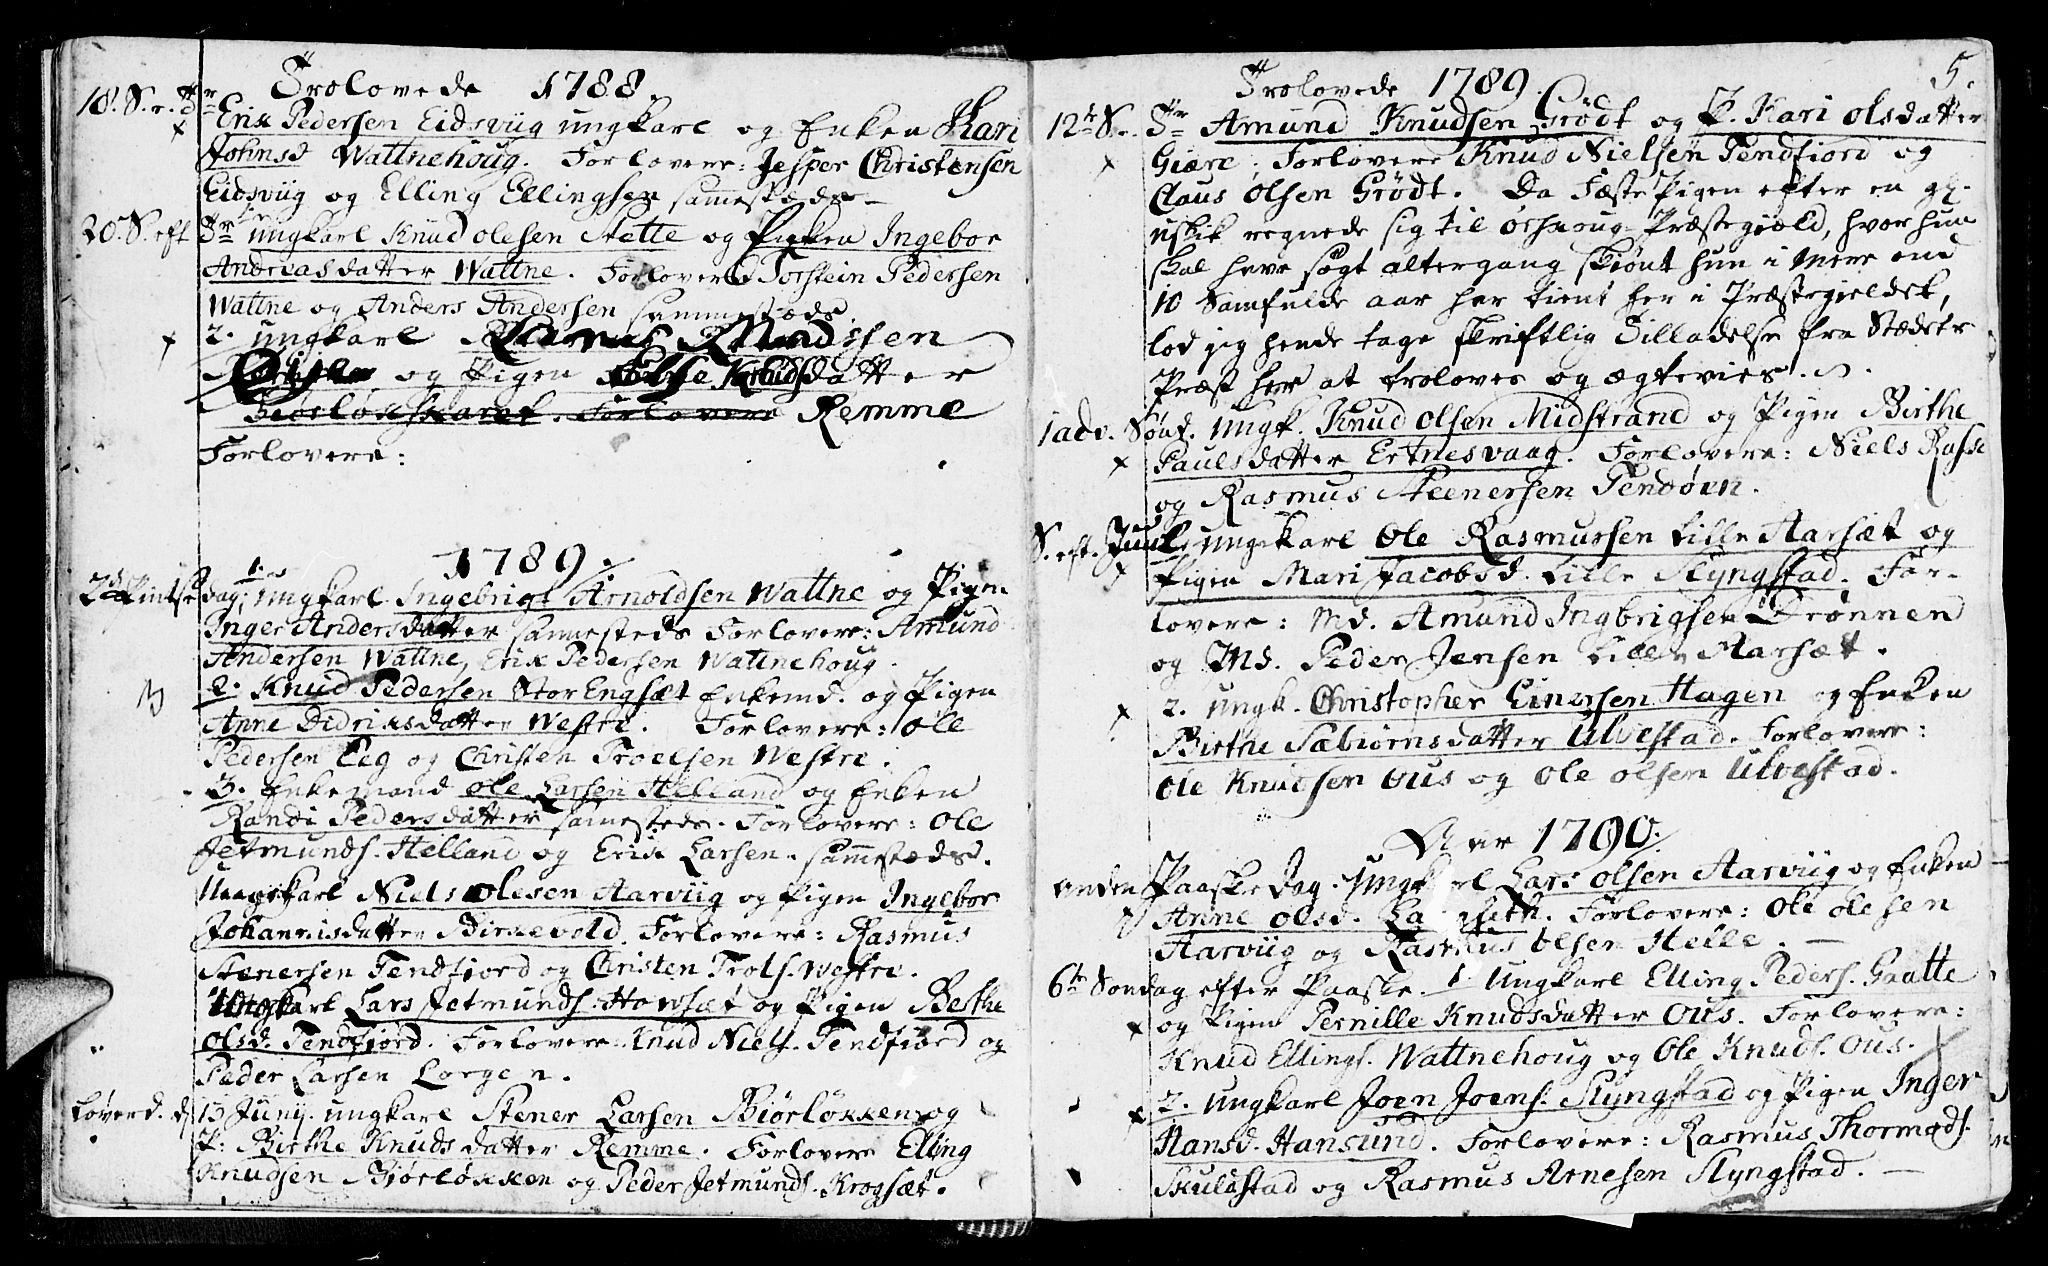 Trolovede 1788.
18. S. e. Tr. Erik Pedersen Eidsviig ungkarl og Enken Kari
Johnsd Wattnehoug. Forlovere: Jesper Christensen
Eidsviig og Elling Ellingsen samestæds
20. S. eft Tr. ungkarl Knud olesen Stette og Pigen Ingebor
Andreasdatter Wattne. Forlovere Torstein Pedersen
Wattne og Anders Andersen sammestæds.
2. ungkarl Rasmus Knudssen
og Pigen Knudsdatter
Forlovere Remme
Forlovere:
1789.
2d Pintsedag; 1. ungkarl Ingebrigt Arnoldsen Wattne og Pigen
Inger Andersdatter sammesteds Forlovere: Amund
Andersen Wattne, Erik Pedersen Wattnehoug.
2. Knud Pedersen Stor Engsæt Enkemd. og Pigen
Anne Didriksdatter Westre. Forlovere: Ole
Pedersen Eeg og Christen Troelsen Westre.
3. Enkemand ole Larsen Helland og Enken
Randi Pedersdatter samesteds. Forlovere: Ole
Jetmunds. Helland og Erik Larsen. sammestæds.
Ungkarl Niels Olesen Aarviig og Pigen Ingebor
Johannisdatter Birkevold. Forlovere: Rasmus
Stenersen Tendfiord og Christen Trols. Westre.
Ungkarl Lars Jetmunds. Hovsæt og Pigen Berthe
olsd. Tendfiord. Forlovere Knud Niels. Tendfiord og
Peder Larsen Lorgen.
Løverd. d. 13 Junij. ungkarl Stener Larsen Biørløkken og
P. Birthe Knudsdatter Remme. Forlovere Elling
Knudsen Biørløkken og Peder Jetmunds. Krogsæt.
Trolovede 1789. 5.
12te S. Tr Amund Knudsen Grødt og P. Kari olsdatter
Giære; Forlovere Knud Nielsen Tendfiord og
Claus Olsen Grødt. Da Fæste Pigen efter en gl.
uskik regnede sig tilØrskoug Præstegiæld, hvor hun
skal have søgt altergang skiønt hun i mere end
10 Samfulde aar har tient her i Præstegieldet,
lod jeg hende tage skriftlig Tilladelse fra Stædets
Præst her at troloves og ægtevies.
1 adv. Sønt. ungk. Knud olsen Midstrand og Pigen Birthe
Paulsdatter Ertnesvaag. Forlovere: Niels Rasse
og Rasmus Steenersen Tendøen.
S. eft. Juul. ungkarl Ole Rasmussen Lille Aarsæt og
Pigen Mari Jacobsd. Lille Slyngstad. For-
lovere: Md. Amund Ingbrigsen Drønnen
og Md. Peder Jensen Lille Aarsæt.
2. Ungk. Christopher Einersen Hagen og Enken
Birthe Sæbiørnsdatter Ulvestad. Forlovere:
Ole Knudsen Ous og Ole olsen Ulvestad.
Aar 1790.
anden Paaske Dag. Ungkarl Lars Olsen Aarviig og Enken
Anne Olsd. Forlovere: Ole olesen
Aarviig og Rasmus Olsen Helle.
6te Søndag efter Paaske. 1 Ungkarl Elling Peders. Gaatte
og Pigen Pernille Knudsdatter Ous. Forlovere:
Knud Ellings. Wattnehoug og Ole Knuds. Ous.
2. Ungkarl Joen Joens. Slyngstad og Pigen Inger
Hansd. Hansund. Forlovere: Rasmus Thormods.
Skulstad og Rasmus Arnesen Slyngstad.